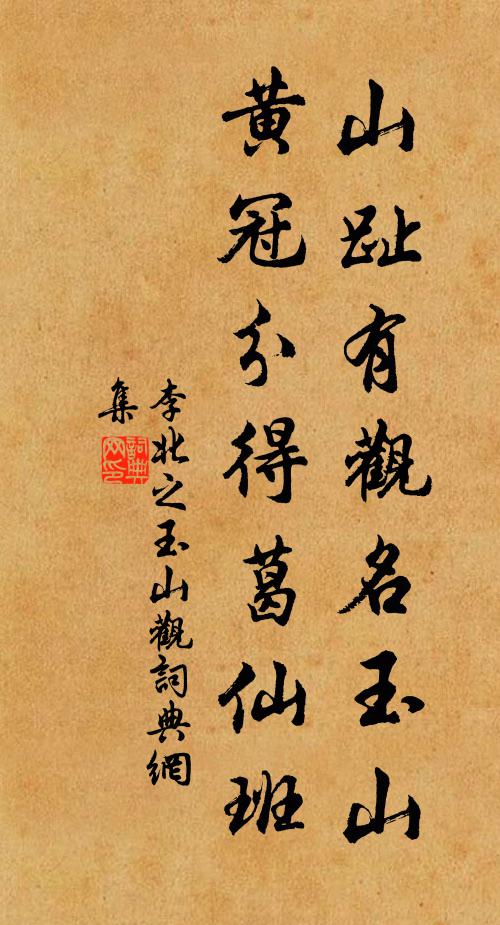 山趾有觀名玉山
黃冠分得葛仙班
李北之玉山觀詞典網
集
詞典
网印